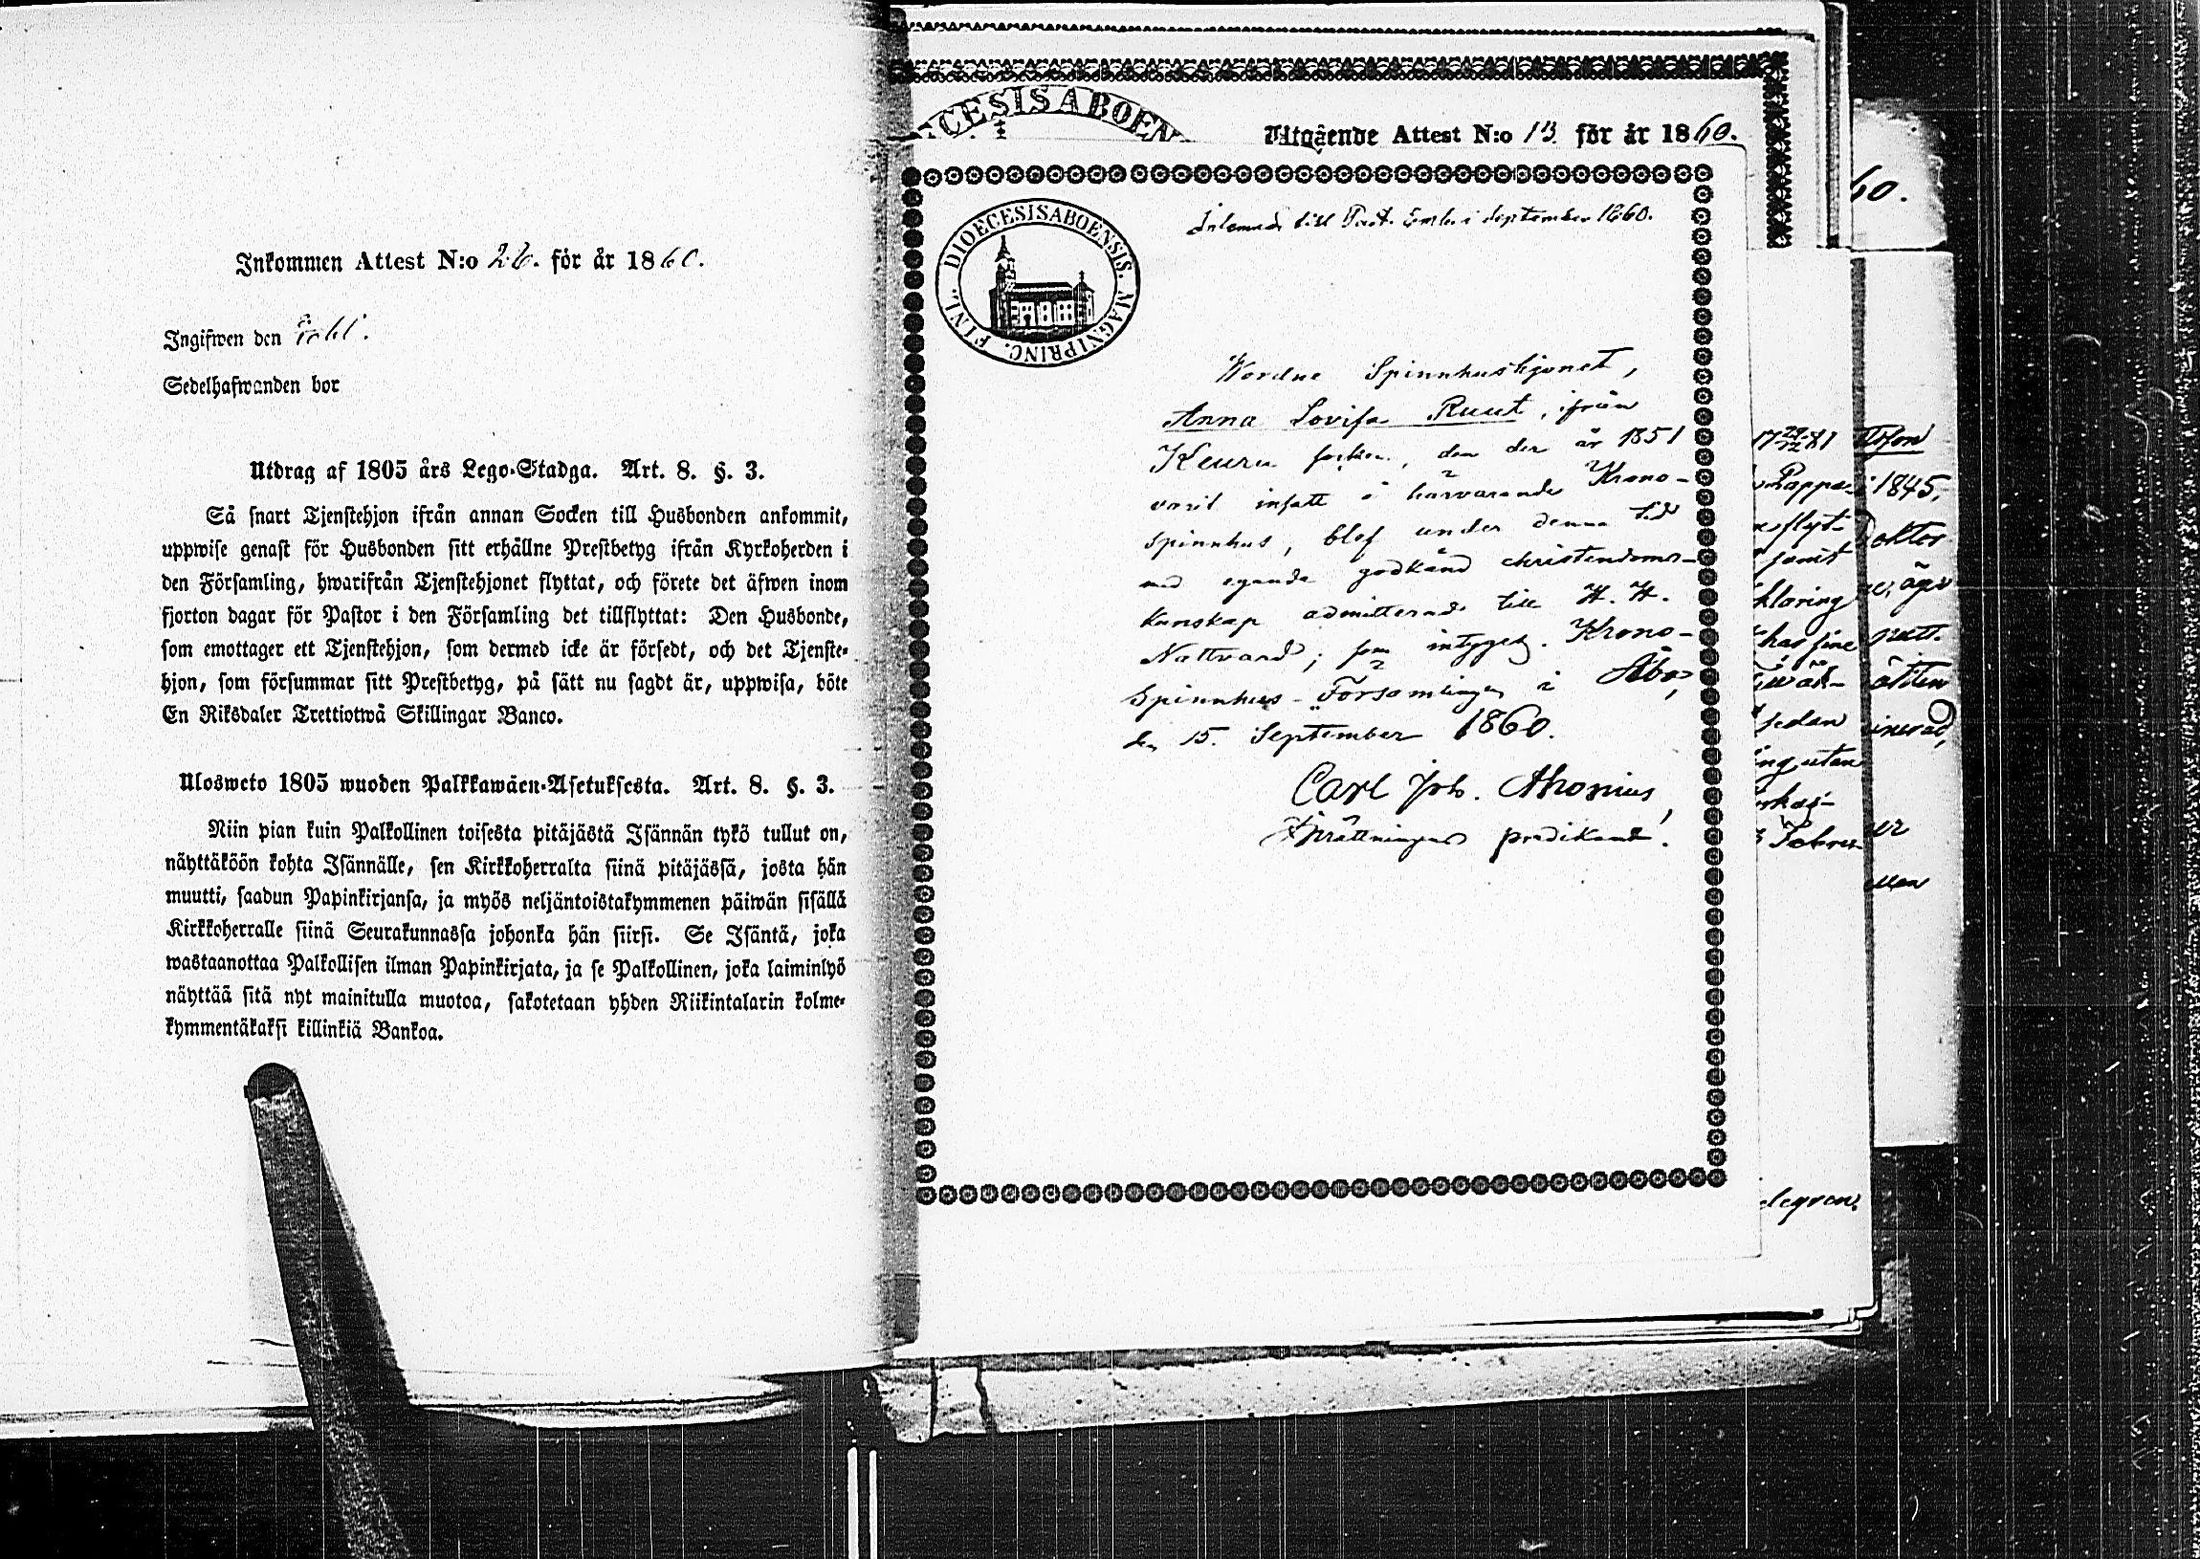 Inkommen Attest N:o 26. för år 1860.
Ingifwen den
Sedelhafwanden bor
Utdrag af 1805 års Lego-Stadga. Art. 8. §. 3.
Så snart Tjenstehjon ifrån annan Socken till Husbonden ankommit,
uppwise genast för Husbonden sitt erhållne Prestbetyg ifrån Kyrkoherden i
den Församling, hwarifrån Tjenstehjonet flyttat, och förete det äfwen inom
fjorton dagar för Pastor i den Församling det tillflyttat: Den Husbonde,
som emottager ett Tjenstehjon, som dermed icke är försedt, och det Tjenste-
hjon, som försummar sitt Prestbetyg, på sätt nu sagdt är, uppwisa, böte
En Riksdaler Trettiotwå Skillingar Banco.
Ulosweto 1805 wuoden Palkkawäen-Asetuksesta. Art. 8. §. 3.
Niin pian kuin Palkollinen toisesta pitäjästä Isännän tykö tullut on,
näyttäköön kohta Isännälle, sen Kirkkoherralta siinä pitäjässä, josta hän
muutti, saadun Papinkirjansa, ja myös neljäntoistakymmenen päiwän sisällä
Kirkkoherralle siinä Seurakunnassa johonka hän siirsi. Se Isäntä, joka
wastaanottaa Palkollisen ilman Papinkirjata, ja se Palkollinen, joka laiminlyö
näyttää sitä nyt mainitulla muotoa, sakotetaan yhden Riikintalarin kolme-
kymmentäkaksi killinkiä Bankoa.
CESIS ABOEN
Utgående Attest N:o 13 för år 1860.
DIOECESIS ABOENSIS. MAGNI PRINC. FINL.
till Past. i September 1860.
Wordne Spinnhushjonet,
Anna Lovisa Ruut, ifrån
Keuru socken, den der år 1851
varit insatt i härvarande Krono-
spinnhus, blef under denna tid
med egande godkänd christendoms-
kunskap admitterad till H. H.
Nattvard; som intygas. Krono-
Spinnhus-Församlingen i Åbo,
den 15. September 1860.
Carl Joh. Ahonius,
Inrättningens predikant.
60.
1845,
Doktor
äger
klaring
har sine
sedan
utan